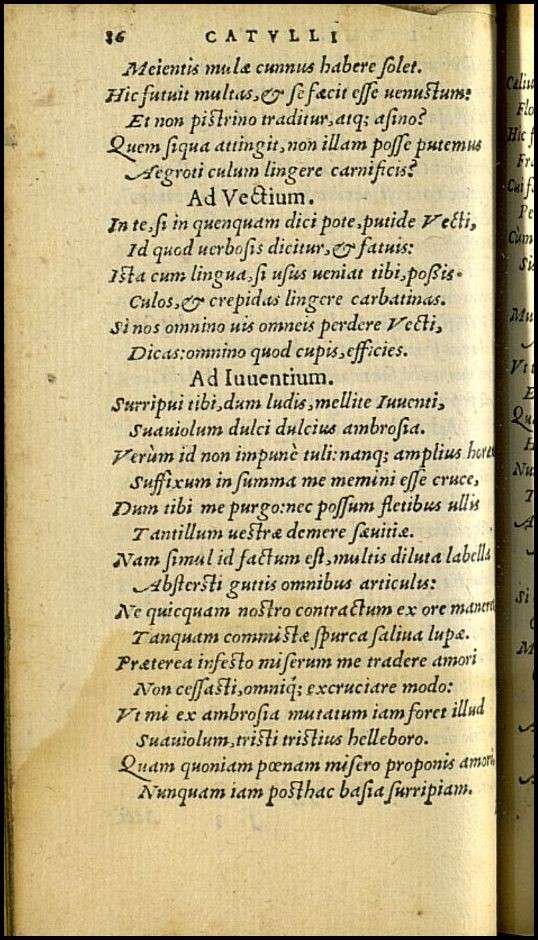 86 CATVLLI
Meientis mulæ cunnus habere solet.
Hic futuit multas, & se facit esse uenustum:
Et non pistrino traditur, atq; asino?
Quem siqua attingit, non illam posse putemus
Aegroti culum lingere carnificis?
Ad Vectium.
In te, si in quenquam dici pote, putide Vecti,
Id quod uerbosis dicitur, & fatuis:
Ista cum lingua, si usus ueniat tibi, poßis
Culos, & crepidas lingere carbatinas.
Si nos omnino uis omneis perdere Vecti,
Dicas: omnino quod cupis, efficies.
Ad Iuuentium.
Surripui tibi, dum ludis, mellite Iuuenti,
Suauiolum dulci dulcius ambrosia.
Verùm id non impunè tuli: nanq; amplius
Suffixum in summa me memini esse cruce,
Dum tibi me purgo: nec possum fletibus ullis
Tantillum uestræ demere sæuitiæ.
Nam simul id factum est, multis diluta labella
Abstersti guttis omnibus articulis:
Ne quicquam nostro contractum ex ore
Tanquam commistæ spurca saliua lupæ.
Præterea infesto miserum me tradere amori
Non cessasti, omniq́; excruciare modo:
Vt mi ex ambrosia mutatum iam foret illud
Suauiolum, tristi tristius helleboro.
Quam quoniam pœnam misero proponis amori,
Nunquam iam posthac basia surripiam.